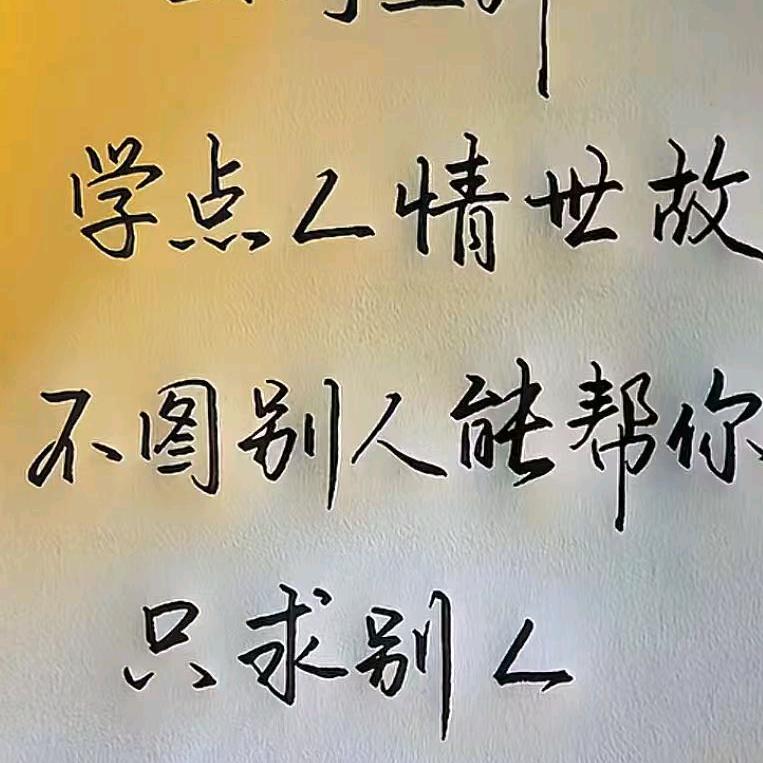 学点人情世故
不图别人能帮你
只求别人